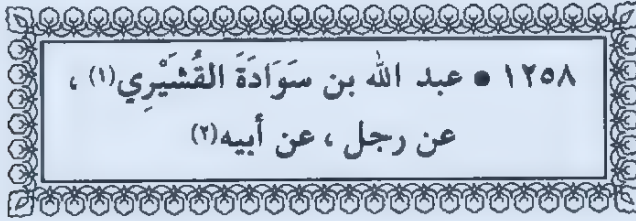 ١٢٥٨ • عبد الله بن سَوَادَةَ القُشَيْرِي(١) ،
عن رجل ، عن أبيه(٢)